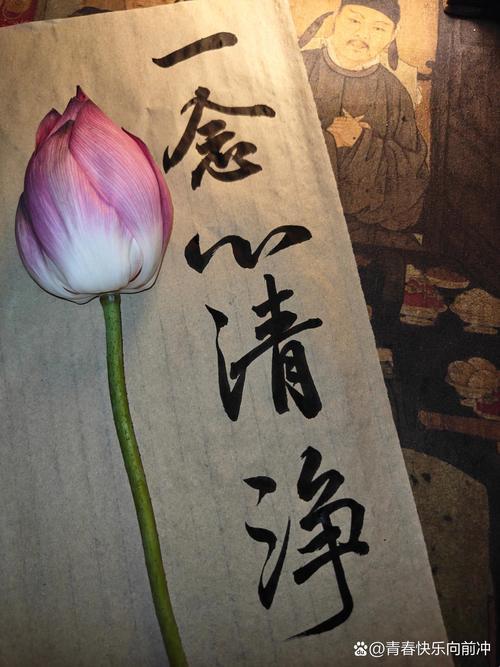 一念心清净
@青春快乐向前冲